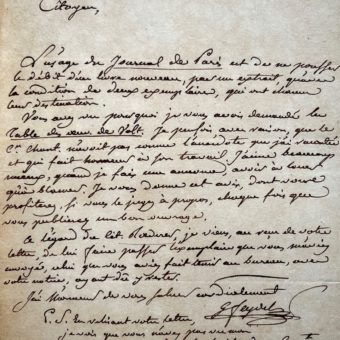 Citoyen,
L'usage du Journal de Paris est de ne pousser
le débit d'un livre nouveau, par un extrait, qu'à
la condition de deux exemplaire, qui ont chacun
leur destination.
Vous avez vu pourquoi je vous avois demandé la
Table des œuv. de Volt. Je pensois avec raison, que le
Cn. Chant. n'avoit pas connu l'anecdote que j'ai racontée
et qui fait honneur à son travail. J'aime beaucoup
mieux, quand je fais une annonce, avoir à louer
qu'à blâmer. Je vous donne cet avis, dont vous
profiterez, si vous le jugez à propos, chaque fois que
vous publierez un bon ouvrage.
à l'égard du Cit. Rœderer, je viens, au vu de votre
lettre, de lui faire passer l'exemplaire que vous m'aviez
envoyé, celui que vous aviez fait tenir au bureau, avec
votre notice, ayant dû y rester.
J'ai l'honneur de vous saluer cordialement
G. Feydel
P. S. En relisant votre lettre,
je vois que vous n'avez pas vu mon